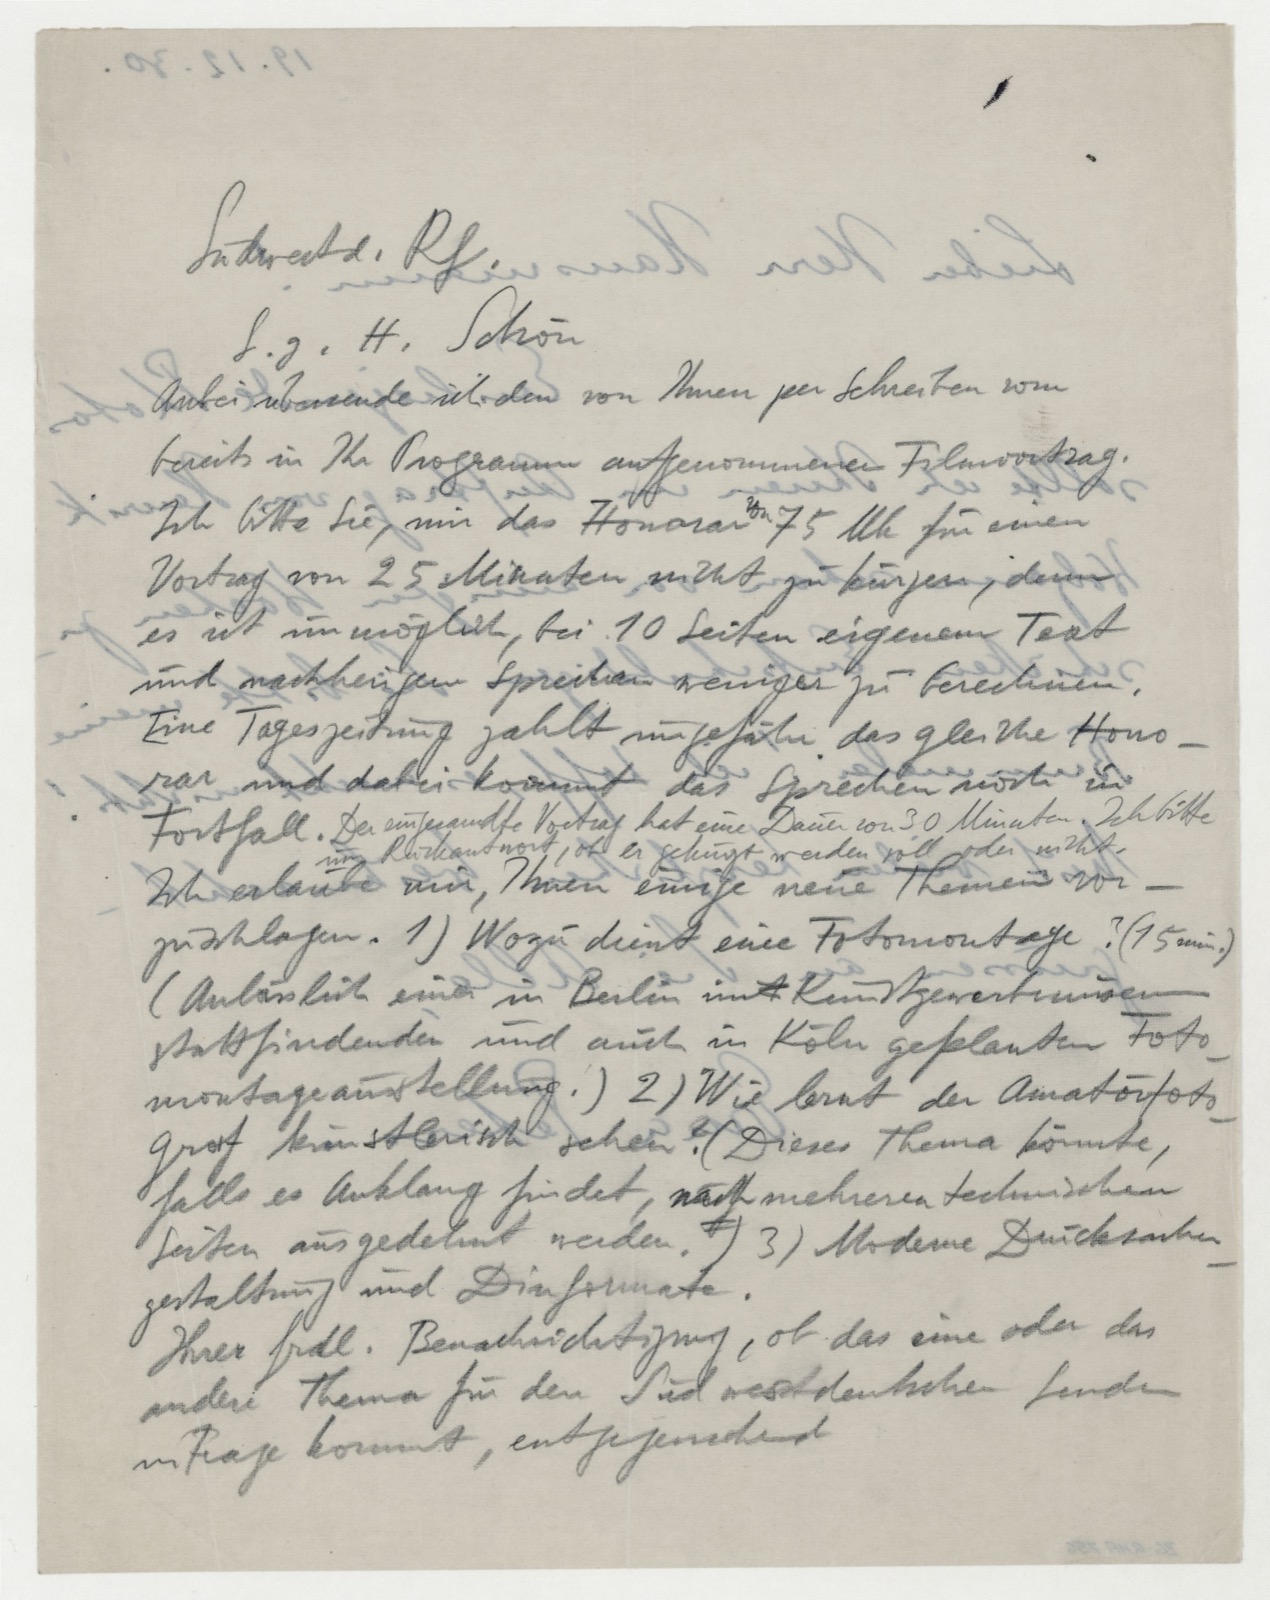 Südwestd. Rf.
S. g. H. Schön
Anbei übersende ich den von Ihnen per Schreiben vom
bereits in Ihr Programm aufgenommenen Filmvortrag.
Ich bitte Sie, mir das Honorar von 75 Mk für einen
Vortrag von 25 Minuten nicht zu kürzen, denn
es ist unmöglich, bei 10 Seiten eigenem Text
und nachherigem Sprechen weniger zu berechnen.
Eine Tageszeitung zahlt ungefähr das gleiche Hono-
rar und dabei kommt das Sprechen noch in
Fortfall. Der eingesandte Vortrag hat eine Dauer von 30 Minuten. Ich bitte
um Rückantwort, ob er gekürzt werden soll oder nicht.
Ich erlaube mir, Ihnen einige neue Themen vor-
zuschlagen. 1) Wozu dient eine Fotomontage? (15 min.)
(Anlässlich einer in Berlin im Kunstgewerbemuseum
stattfindenden und auch in Köln geplanten Foto-
montageausstellung.) 2) Wie lernt der Amatörfoto-
graf künstlerisch sehen? (Dieses Thema könnte,
falls es Anklang findet, nach mehreren technischen
Seiten ausgedehnt werden.) 3) Moderne Drucksachen-
gestaltung und Dinformate.
Ihrer frdl. Benachrichtigung, ob das eine oder das
andere Thema für den Südwestdeutschen Sender
in Frage kommt, entgegensehend
19.12.30.
Lieber Herr Hausmann